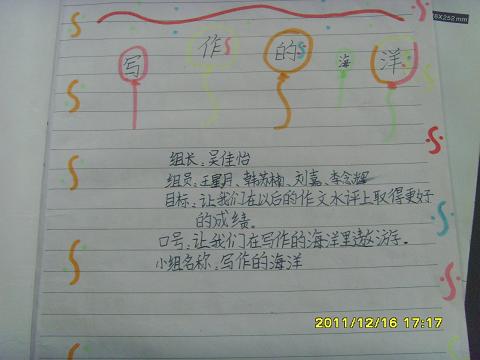 写作的海洋
组长:吴佳怡
组员:王星月、韩苏楠、刘嘉、李念辉
目标:让我们在以后的作文水评上取得更好
的成绩。
口号:让我们在写作的海洋里遨游。
小组名称:写作的海洋
2011/12/16 17:17